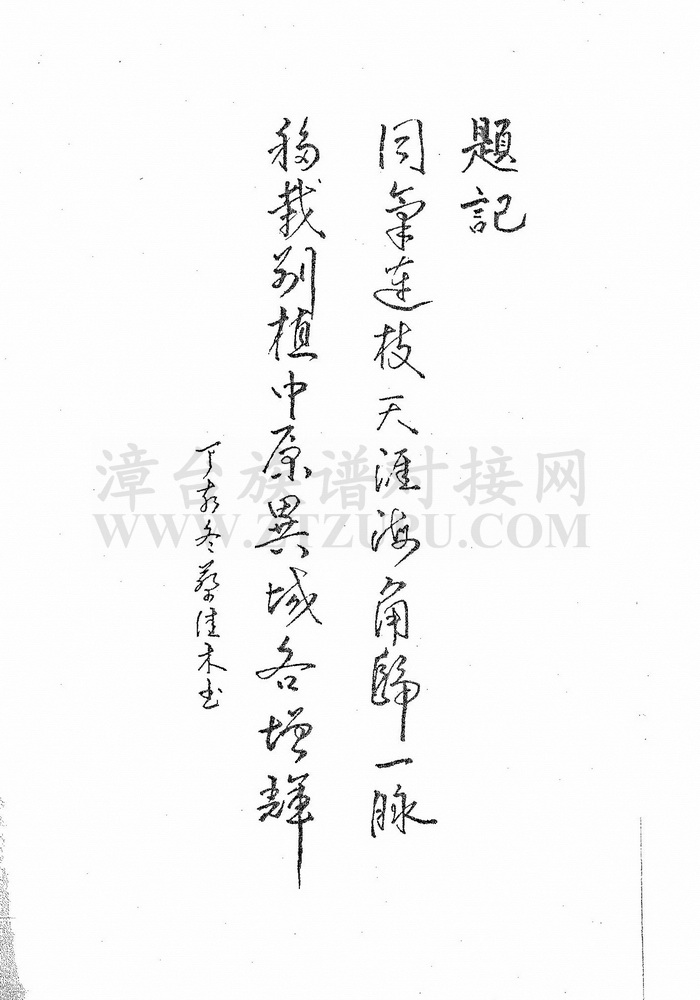 題記
同氣連枝天涯海角歸一脉
移栽別植中原異域各增輝
丁亥冬蔡佳木书
漳台族谱对接网
WWW.ZTZUPU.COM